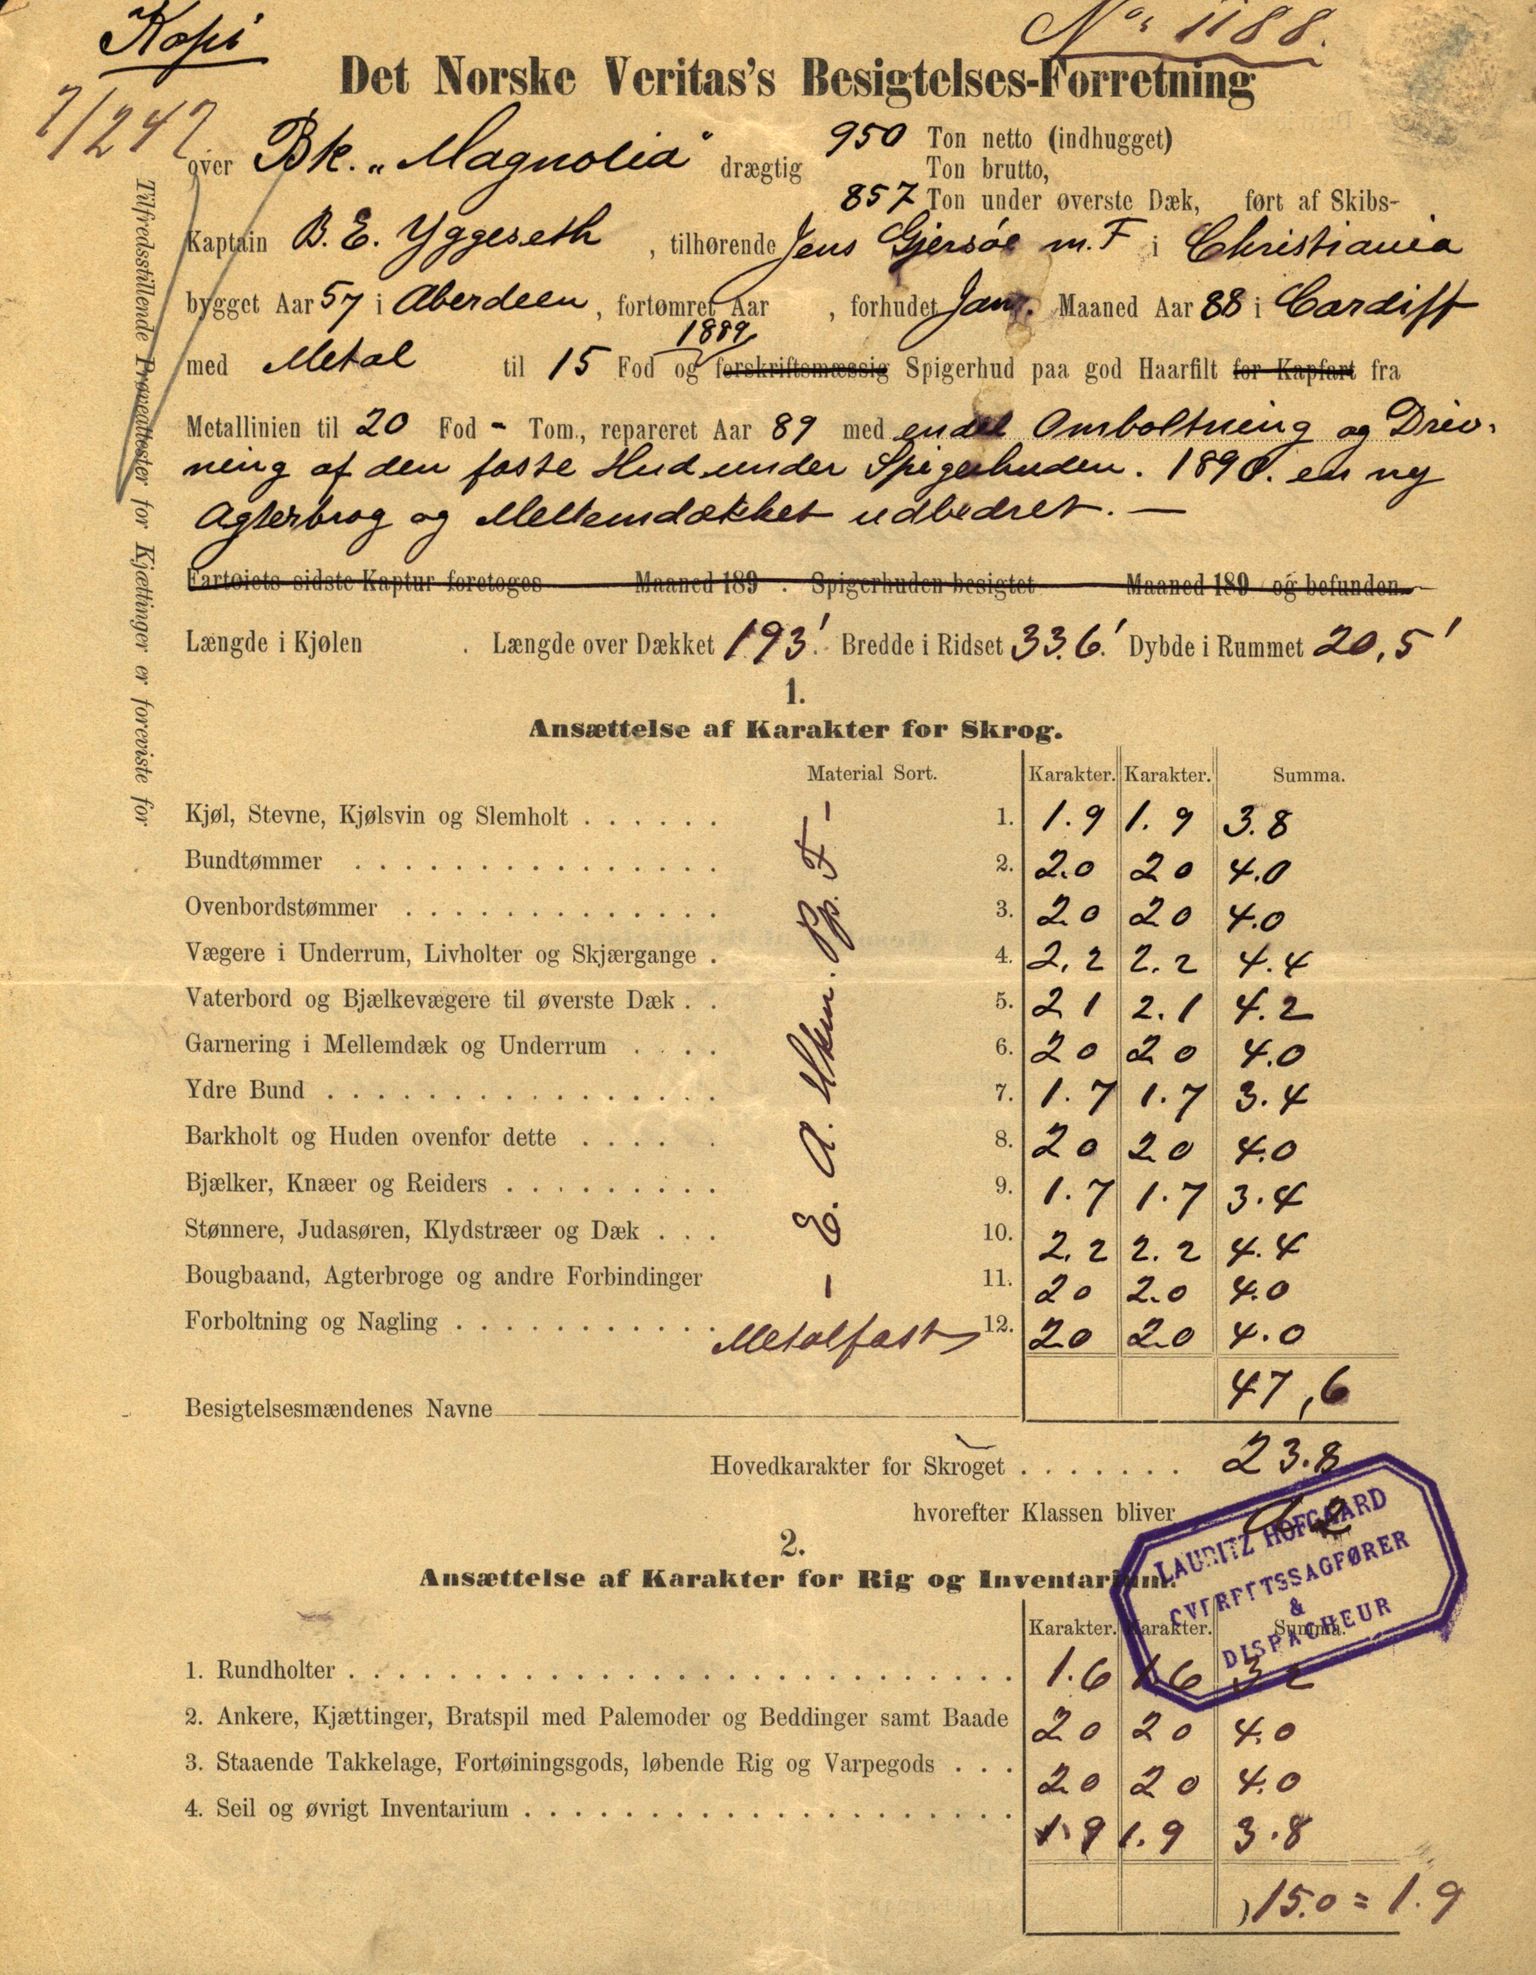 Kopi
No. 1188.
Det Norske Veritas's Besigtelses-Forretning
7/247
over Bk. „Magnolia" drægtig 950 Ton netto (indhugget)
Ton brutto,
857 Ton under øverste Dæk, ført af Skibs-
Kaptain B. E. Yggeseth, tilhørende Jens Gjersøe m. F i Christiania
bygget Aar 57 i Aberdeen, fortømret Aar , forhudet Jan. Maaned Aar 88 i Cardiff
1889
med Metal til 15 Fod og forskriftsmæssig Spigerhud paa god Haarfilt for Kapfart fra
Metallinien til 20 Fod - Tom., repareret Aar 89 med endel Omboltning og Driv-
ning af den faste Hud under Spigerhuden. 1890. en ny
Agterbrog og Mellemdækket udbedret. —
Fartøiets sidste Kaptur foretoges Maaned 189 . Spigerhuden besigtet Maaned 189 og befunden
Længde i Kjølen . Længde over Dækket 193'. Bredde i Ridset 33.6.' Dybde i Rummet 20,5'
Tilfredsstillende Prøveattester for Kjættinger er foreviste for
1.
Ansættelse af Karakter for Skrog.
Material Sort. Karakter. Karakter. Summa.
Kjøl, Stevne, Kjølsvin og Slemholt . . . . . . 1. 1.9 1.9 3.8
Bundtømmer . . . . . . . . . . . . . . . 2. 2.0 20 4.0
Ovenbordstømmer . . . . . . . . . . . . . 3. 20 20 4.0
Vægere i Underrum, Livholter og Skjærgange . 4. 2,2 2.2 4.4
Vaterbord og Bjælkevægere til øverste Dæk . . 5. 21 2.1 4.2
Garnering i Mellemdæk og Underrum . . . . 6. 20 20 4.0
Ydre Bund . . . . . . . . . . . . . . . . . 7. 1.7 1.7 3.4
Barkholt og Huden ovenfor dette . . . . . 8. 20 20 4.0
Bjælker, Knæer og Reiders . . . . . . . . . 9. 1.7 1.7 3.4
Stønnere, Judasøren, Klydstræer og Dæk . . . 10. 2,2 2.2 4.4
Bougbaand, Agterbroge og andre Forbindinger 11. 20 2.0 4.0
Forboltning og Nagling . . . . . . . . . . . Metalfast 12. 20 20 4.0
– E. A. Hkm. Pp. F –
47,6
Besigtelsesmændenes Navne
Hovedkarakter for Skroget . . . . . . . 23.8
hvorefter Klassen bliver
LAURITZ HOFGAARD
OVERRETSSAGFØRER
&
DISPACHEUR
2.
Ansættelse af Karakter for Rig og Inventarium.
Karakter. Karakter. Summa.
1. Rundholter . . . . . . . . . . . . . . . . . . . . . . . 1.6 1.6 3 2
2. Ankere, Kjættinger, Bratspil med Palemoder og Beddinger samt Baade 20 20 4.0
3. Staaende Takkelage, Fortøiningsgods, løbende Rig og Varpegods . . . 20 20 4.0
4. Seil og øvrigt Inventarium . . . . . . . . . . . . . . . . . 1.9 1.9 3.8
15.0 = 1.9